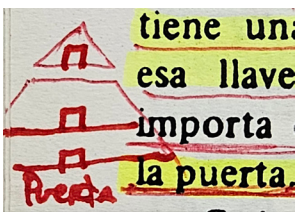 tiene una
esa llave
importa
la puerta.
Puerta